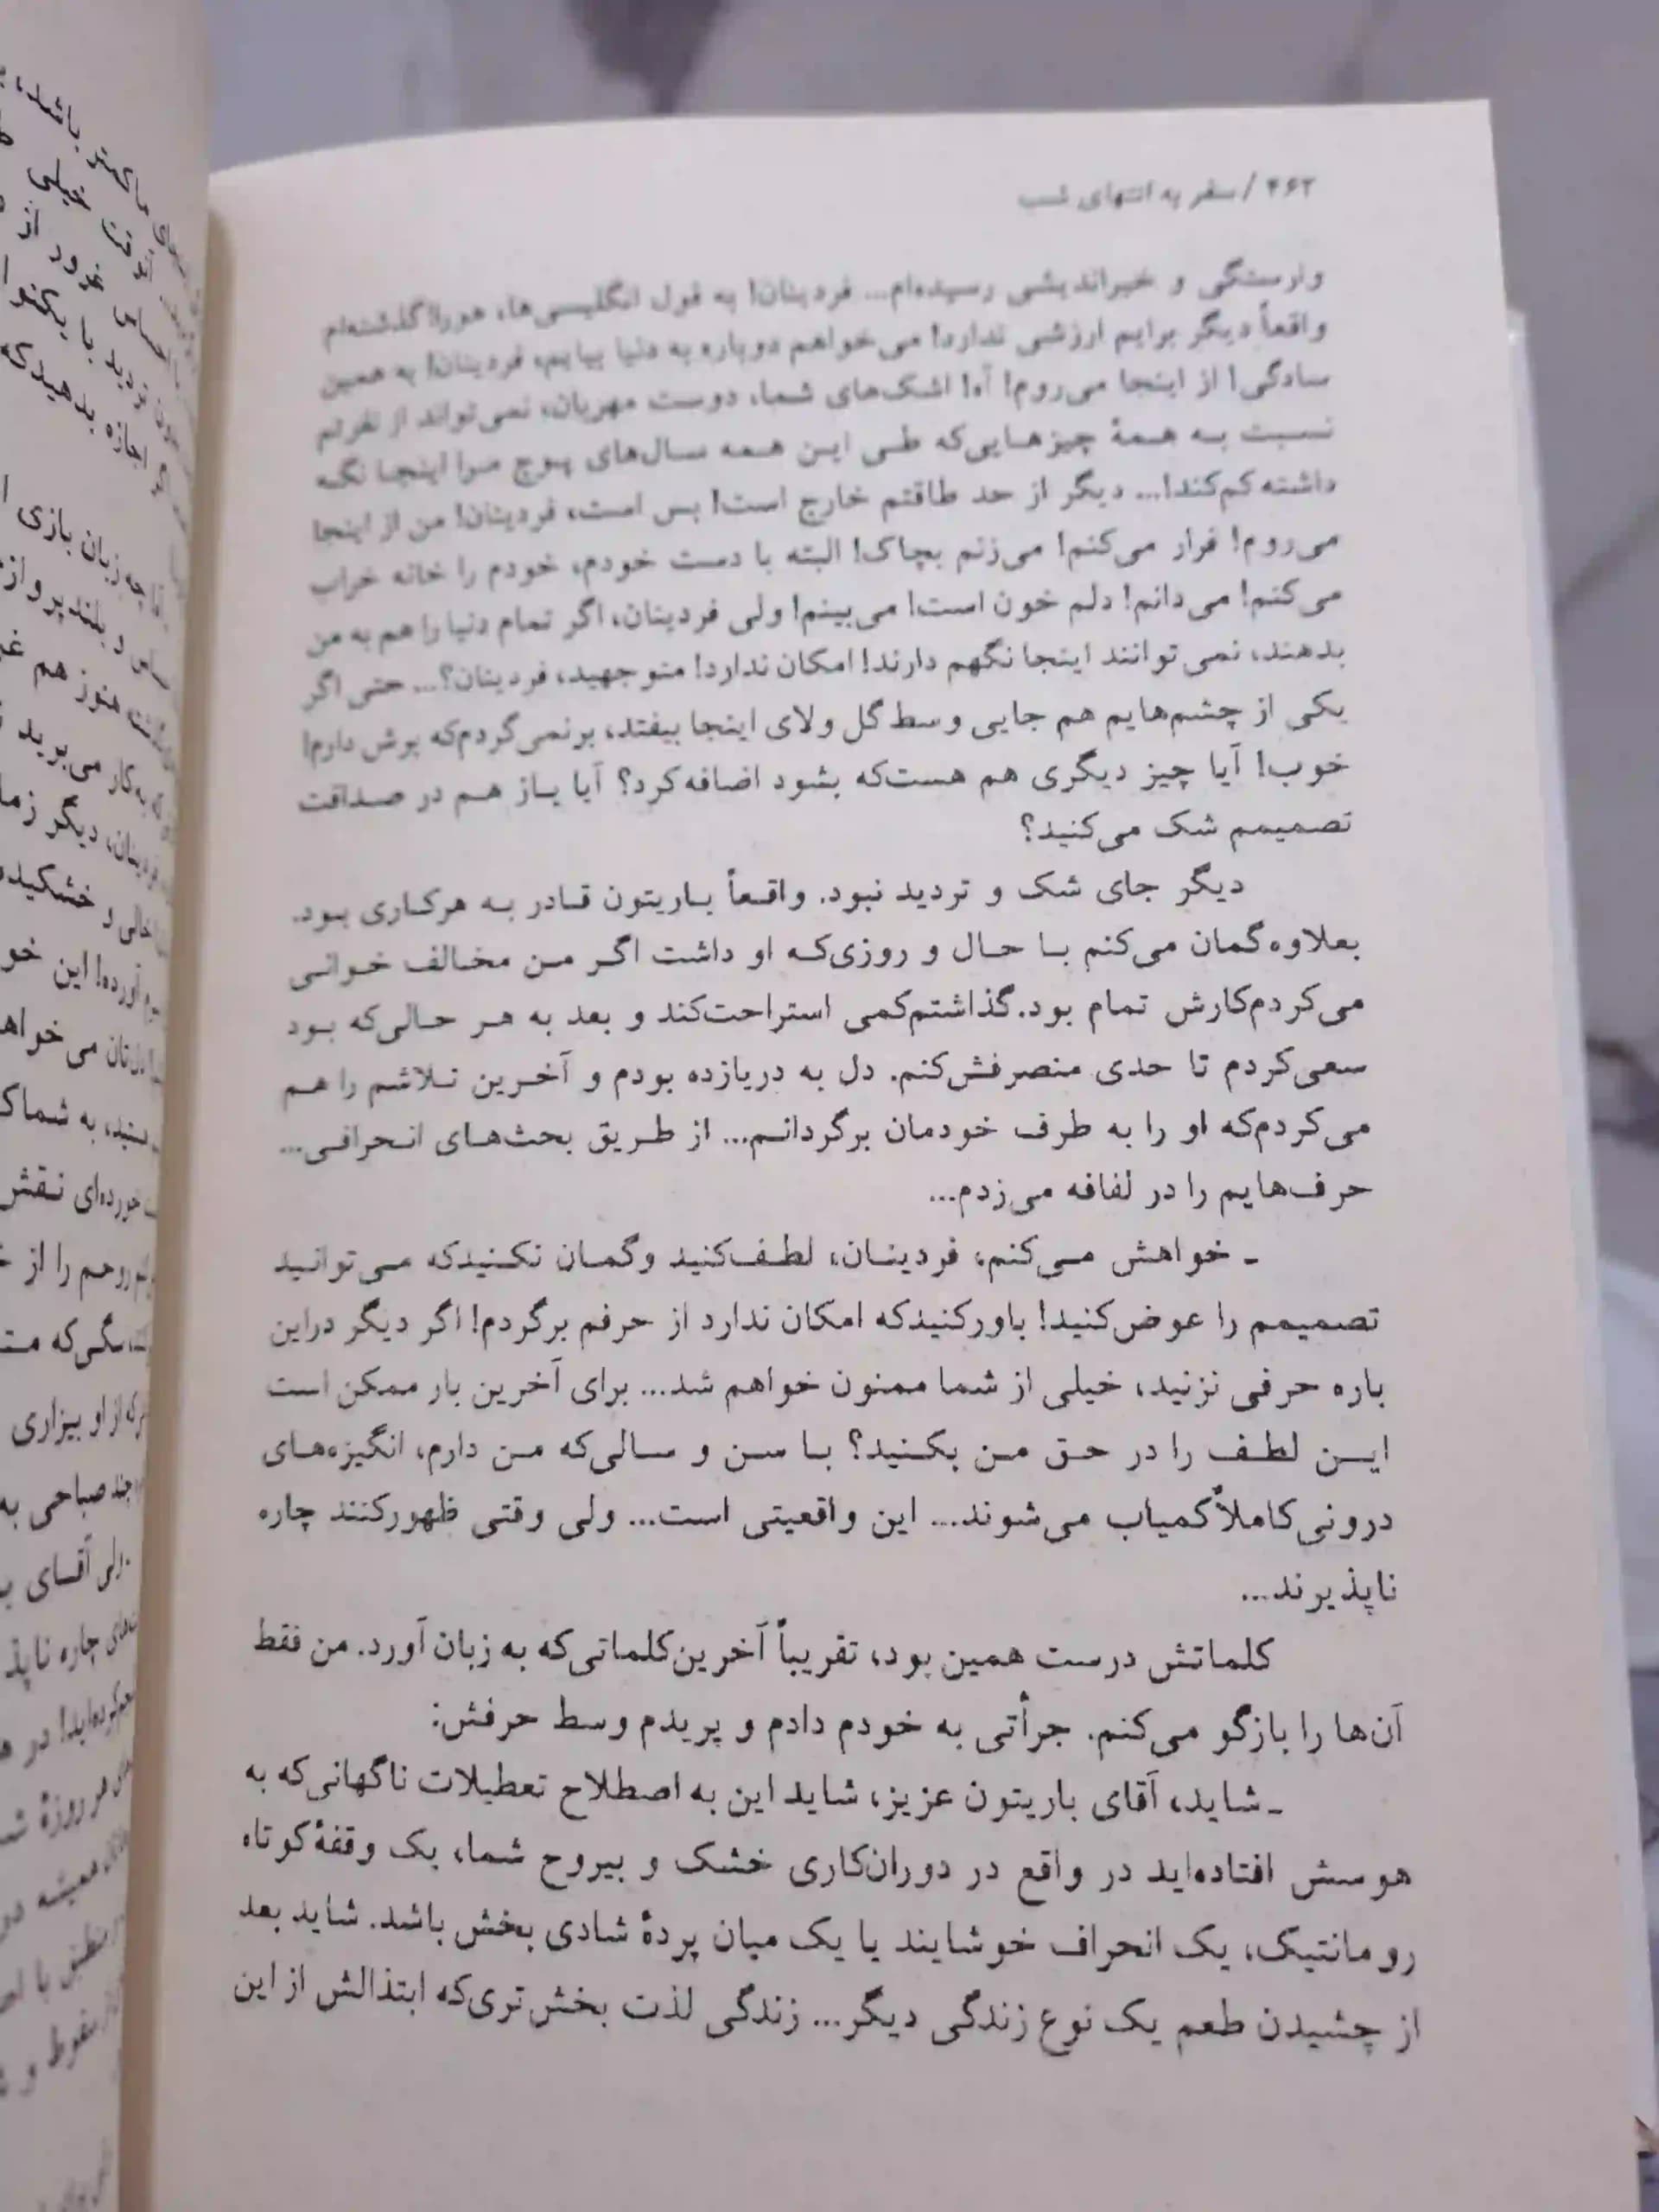 ۴۶۲ / سفر به انتهای شب
وارستگی و خیراندیشی رسیده‌ام... فردینان! به قول انگلیسی‌ها، هورا! گذشته‌ام
واقعاً دیگر برایم ارزشی ندارد! می‌خواهم دوباره به دنیا بیایم، فردینان! به همین
سادگی! از اینجا می‌روم! آه! اشک‌های شما، دوست مهربان، نمی‌تواند از نفرتم
نسبت به همهٔ چیزهایی‌که طی این همه سال‌های پوچ مرا اینجا نگه
داشته کم‌کند!... دیگر از حد طاقتم خارج است! بس است، فردینان! من از اینجا
می‌روم! فرار می‌کنم! می‌زنم بچاک! البته با دست خودم، خودم را خانه خراب
می‌کنم! می‌دانم! دلم خون است! می‌بینم! ولی فردینان، اگر تمام دنیا را هم به من
بدهند، نمی‌توانند اینجا نگهم دارند! امکان ندارد! متوجهید، فردینان؟... حتی اگر
یکی از چشم‌هایم هم جایی وسط گل ولای اینجا بیفتد، برنمی‌گردم‌که برش دارم!
خوب! آیا چیز دیگری هم هست‌که بشود اضافه‌کرد؟ آیا باز هم در صداقت
تصمیمم شک می‌کنید؟
دیگر جای شک و تردید نبود. واقعاً باریتون قادر به هرکاری بود.
بعلاوه گمان می‌کنم با حال و روزی‌که او داشت اگر من مخالف خوانی
می‌کردم‌کارش تمام بود. گذاشتم‌کمی استراحت‌کند و بعد به هر حالی‌که بود
سعی‌کردم تا حدی منصرفش‌کنم. دل به دریازده بودم و آخرین تلاشم را هم
می‌کردم‌که او را به طرف خودمان برگردانم... از طریق بحث‌های انحرافی...
حرف‌هایم را در لفافه می‌زدم...
ـ خواهش می‌کنم، فردینان، لطف‌کنید وگمان نکنیدکه می‌توانید
تصمیمم را عوض‌کنید! باورکنیدکه امکان ندارد از حرفم برگردم! اگر دیگر دراین
باره حرفی نزنید، خیلی از شما ممنون خواهم شد... برای آخرین بار ممکن است
این لطف را در حق من بکنید؟ با سن و سالی‌که من دارم، انگیزه‌های
درونی‌کاملاً کمیاب می‌شوند... این واقعیتی است... ولی وقتی ظهورکنند چاره
ناپذیرند...
کلماتش درست همین بود، تقریباً آخرین‌کلماتی‌که به زبان آورد. من فقط
آن‌ها را بازگو می‌کنم. جرأتی به خودم دادم و پریدم وسط حرفش:
ـ شاید، آقای باریتون عزیز، شاید این به اصطلاح تعطیلات ناگهانی‌که به
هوسش افتاده‌اید در واقع در دوران‌کاری خشک و بیروح شما، یک وقفهٔ کوتاه
رومانتیک، یک انحراف خوشایند یا یک میان پردهٔ شادی بخش باشد. شاید بعد
از چشیدن طعم یک نوع زندگی دیگر... زندگی لذت بخش‌تری‌که ابتذالش از این